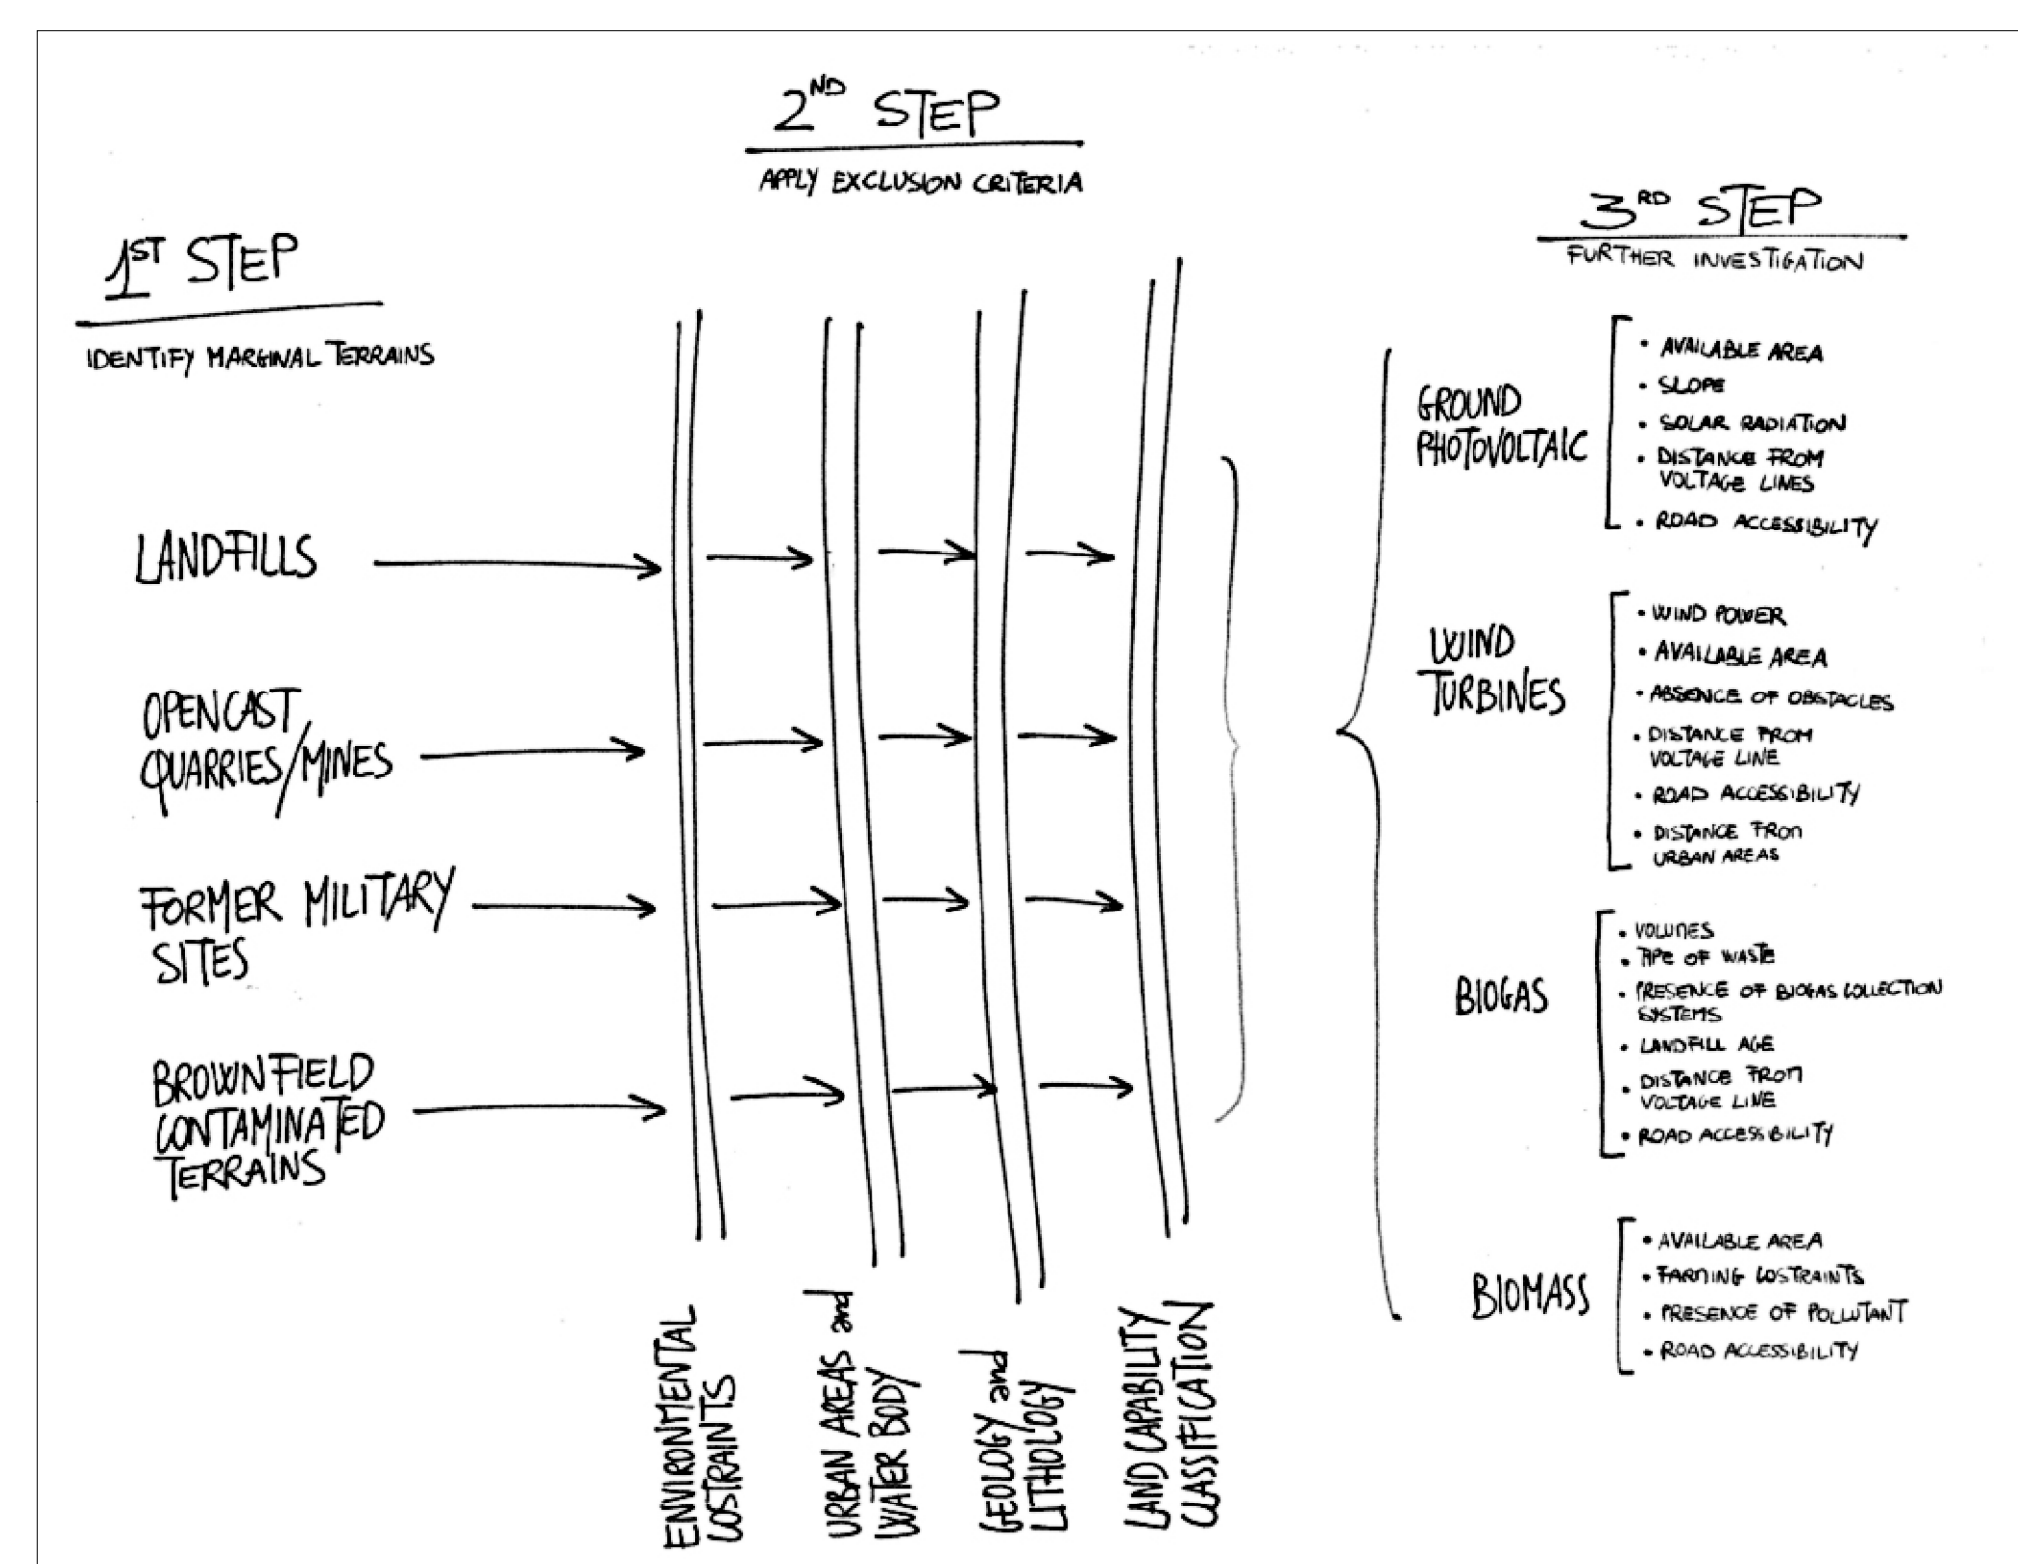 1ST STEP
IDENTIFY MARGINAL TERRAINS
LANDFILLS
OPENCAST
QUARRIES/MINES
FORMER MILITARY
SITES
BROWNFIELD
CONTAMINATED
TERRAINS
2ND STEP
APPLY EXCLUSION CRITERIA
ENVIRONMENTAL
COSTRAINTS
URBAN AREAS and
WATER BODY
GEOLOGY and
LITHOLOGY
LAND CAPABILITY
CLASSIFICATION
3RD STEP
FURTHER INVESTIGATION
GROUND
PHOTOVOLTAIC
• AVAILABLE AREA
• SLOPE
• SOLAR RADIATION
• DISTANCE FROM
VOLTAGE LINES
• ROAD ACCESSIBILITY
WIND
TURBINES
• WIND POWER
• AVAILABLE AREA
• ABSENCE OF OBSTACLES
• DISTANCE FROM
VOLTAGE LINE
• ROAD ACCESSIBILITY
• DISTANCE FROM
URBAN AREAS
BIOGAS
• VOLUMES
• TIPE OF WASTE
• PRESENCE OF BIOGAS COLLECTION
SYSTEMS
• LANDFILL AGE
• DISTANCE FROM
VOLTAGE LINE
• ROAD ACCESSIBILITY
BIOMASS
• AVAILABLE AREA
• FARMING COSTRAINTS
• PRESENCE OF POLLUTANT
• ROAD ACCESSIBILITY